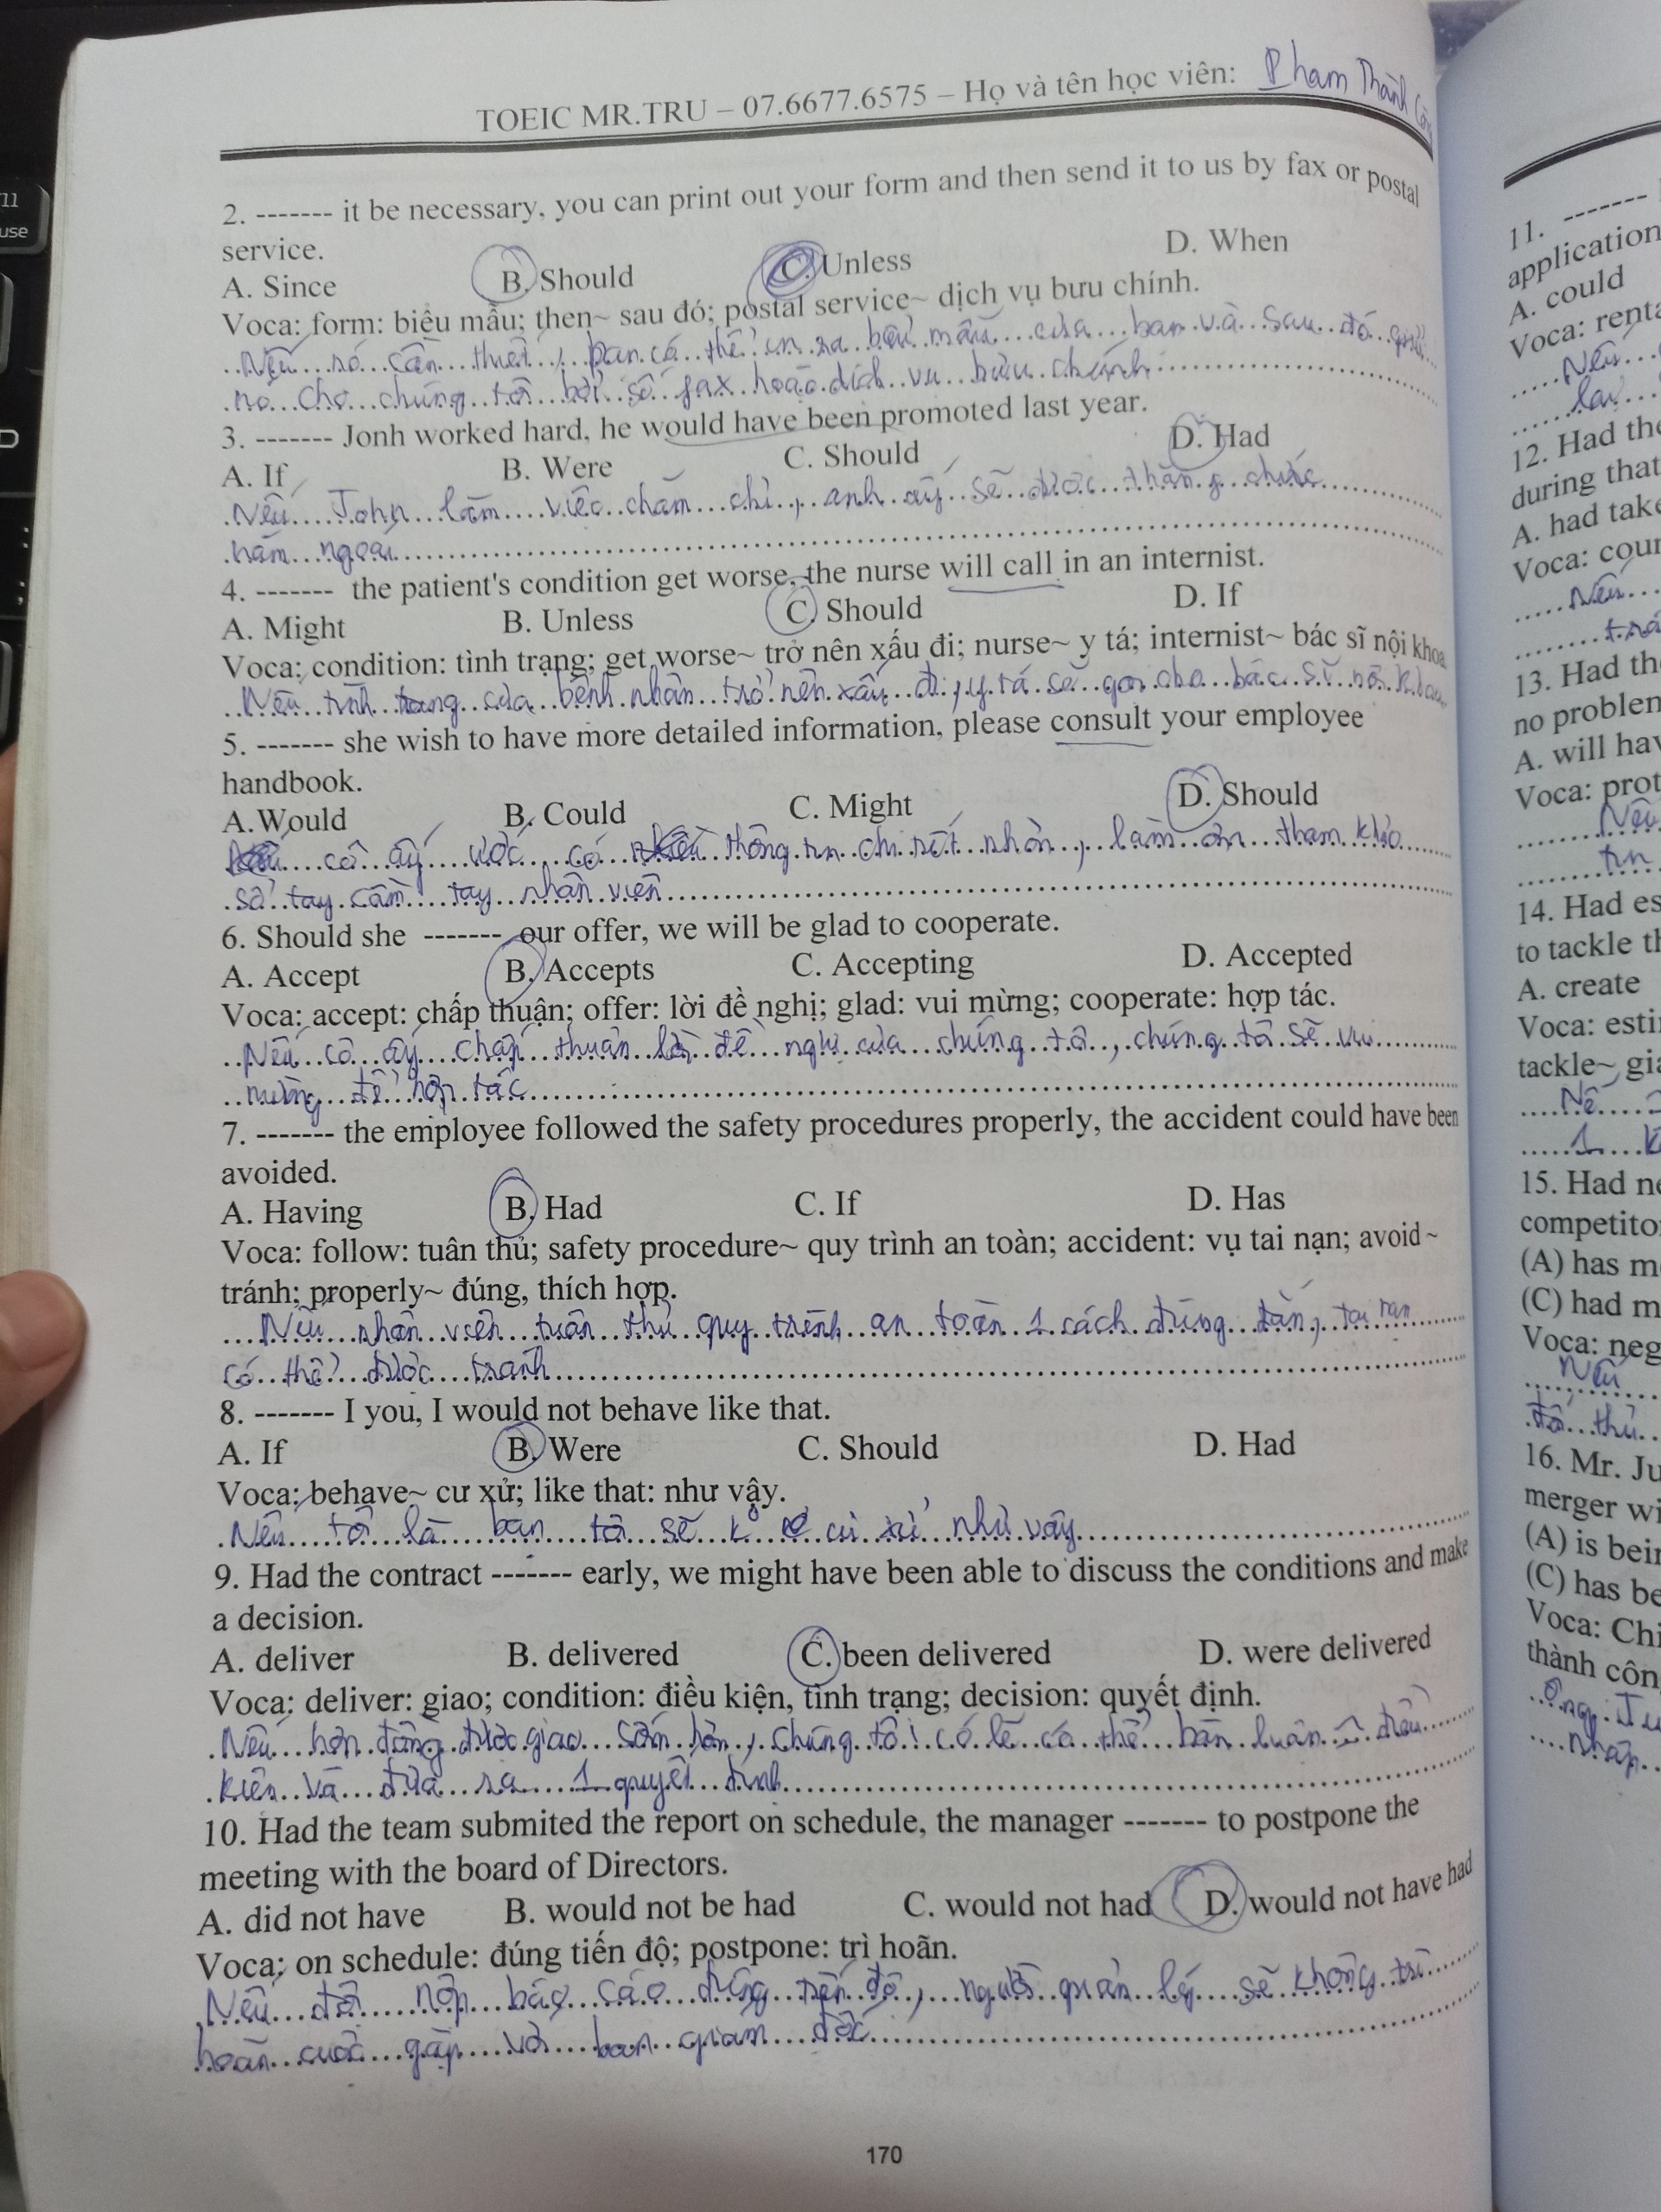 TOEIC MR.TRU – 07.6677.6575 – Họ và tên học viên: Pham Thành
2. ------- it be necessary, you can print out your form and then send it to us by fax or postal
service.
A. Since B. Should C. Unless D. When
Voca: form: biểu mẫu; then~ sau đó; postal service~ dịch vụ bưu chính.
Nếu nó cần thiết, bạn có thể in ra biểu mẫu của bạn và sau đó gửi
nó cho chúng tôi bởi số fax hoặc dịch vụ bưu chính
3. ------- Jonh worked hard, he would have been promoted last year.
A. If B. Were C. Should D. Had
Nếu John làm việc chăm chỉ, anh ấy sẽ được thăng chức
năm ngoái
4. ------- the patient's condition get worse, the nurse will call in an internist.
A. Might B. Unless C. Should D. If
Voca: condition: tình trạng; get worse~ trở nên xấu đi; nurse~ y tá; internist~ bác sĩ nội khoa
Nếu tình trạng của bệnh nhân trở nên xấu đi, y tá sẽ gọi cho bác sĩ nội khoa
5. ------- she wish to have more detailed information, please consult your employee
handbook.
A.Would B. Could C. Might D. Should
cô ấy ước có thông tin chi tiết nhân, làm ơn tham khảo
sổ tay cầm tay nhân viên
6. Should she ------- our offer, we will be glad to cooperate.
A. Accept B. Accepts C. Accepting D. Accepted
Voca: accept: chấp thuận; offer: lời đề nghị; glad: vui mừng; cooperate: hợp tác.
Nếu cô ấy chấp thuận lời đề nghị của chúng tôi, chúng tôi sẽ vui
mừng để hợp tác
7. ------- the employee followed the safety procedures properly, the accident could have been
avoided.
A. Having B. Had C. If D. Has
Voca: follow: tuân thủ; safety procedure~ quy trình an toàn; accident: vụ tai nạn; avoid ~
tránh; properly~ đúng, thích hợp.
Nếu nhân viên tuân thủ quy trình an toàn 1 cách đúng đắn, tai nạn
có thể được tránh
8. ------- I you, I would not behave like that.
A. If B. Were C. Should D. Had
Voca: behave~ cư xử; like that: như vậy.
Nếu tôi là bạn tôi sẽ k cư xử như vậy
9. Had the contract ------- early, we might have been able to discuss the conditions and make
a decision.
A. deliver B. delivered C. been delivered D. were delivered
Voca: deliver: giao; condition: điều kiện, tình trạng; decision: quyết định.
Nếu hợp đồng được giao sớm hơn, chúng tôi có lẽ có thể bàn luận điều
kiện và đưa ra 1 quyết định
10. Had the team submited the report on schedule, the manager ------- to postpone the
meeting with the board of Directors.
A. did not have B. would not be had C. would not had D. would not have had
Voca: on schedule: đúng tiến độ; postpone: trì hoãn.
Nếu đội nộp báo cáo đúng tiến độ, người quản lý sẽ không trì
hoãn cuộc gặp với ban giám đốc
170
11. -------
application
A. could
Voca: renta
Nếu
lại
12. Had the
during that
A. had take
Voca: cour
Nếu
13. Had th
no problem
A. will hav
Voca: prot
Nếu
tin
14. Had es
to tackle th
A. create
Voca: esti
tackle~ gia
1
15. Had ne
competito
(A) has m
(C) had m
Voca: neg
Nếu
đối thủ
16. Mr. Ju
merger wi
(A) is bein
(C) has be
Voca: Chi
thành côn
Ông Ju
nhập